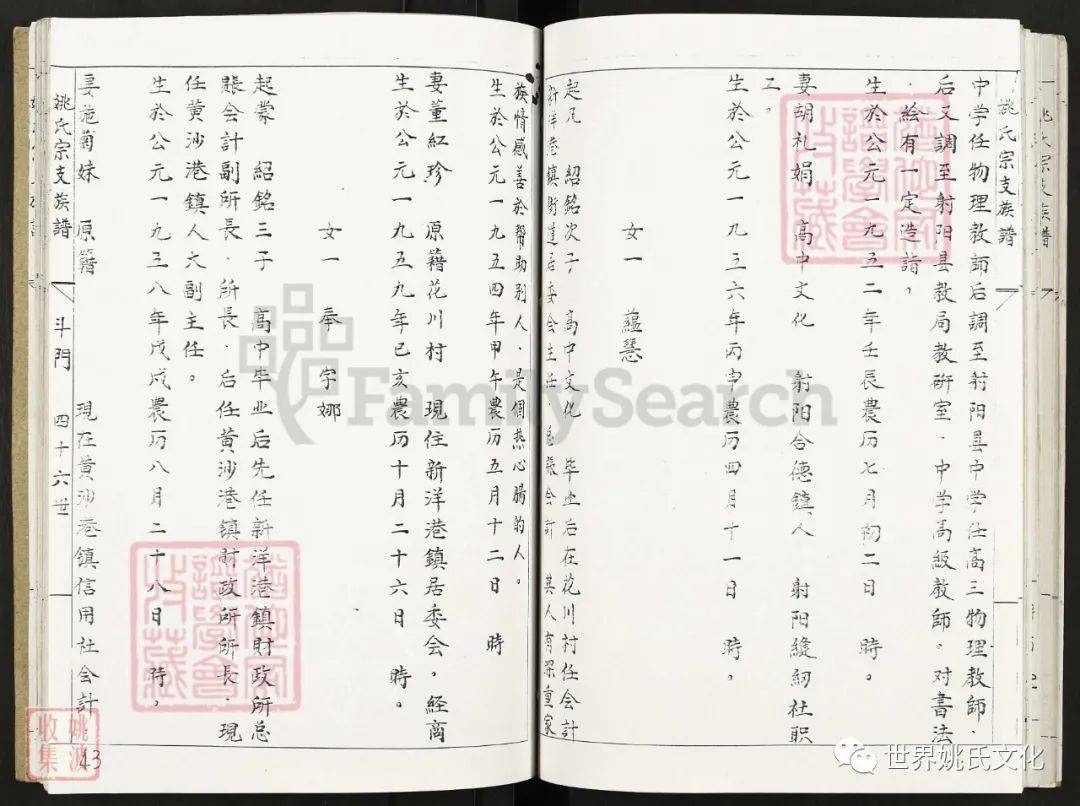 姚氏宗支族譜
中学任物理教師后調至射阳县中学任高三物理教師．
后又調至射阳县教局教研室．中学高級教師。对書法
．絵有一定造詣，
生於公元一九五二年壬辰農历七月初二日 時。
妻胡礼娟 高中文化 射阳合德鎮人 射阳縫紉社职
工。
生於公元一九三六年丙申農历四月十一日 時。
女一 蘊慧
起兄 紹銘次子 高中文化 毕业后在花川村任会計
新洋港鎮街道居委会主任 总賬会計 其人有深重家
族情感善於帮助别人．是個热心腸的人。
生於公元一九五四年甲午農历五月十二日 時
妻董紅珍 原籍花川村 現住新洋港鎮居委会，経商
生於公元一九五九年已亥農历十月二十六日 時。
女一 奉宇娜
起蒙 紹銘三子 高中毕业后先任新洋港鎮財政所总
賬会計副所長．所長．后任黄沙港鎮財政所所長．現
任黄沙港鎮人大副主任。
生於公元一九三八年戊戌農历八月二十八日 時，
妻施菊妹 原籍 現在黄沙港鎮信用社会計
姚氏宗支族譜 斗門 四十六世
43
姚波
收集
FamilySearch
世界姚氏文化